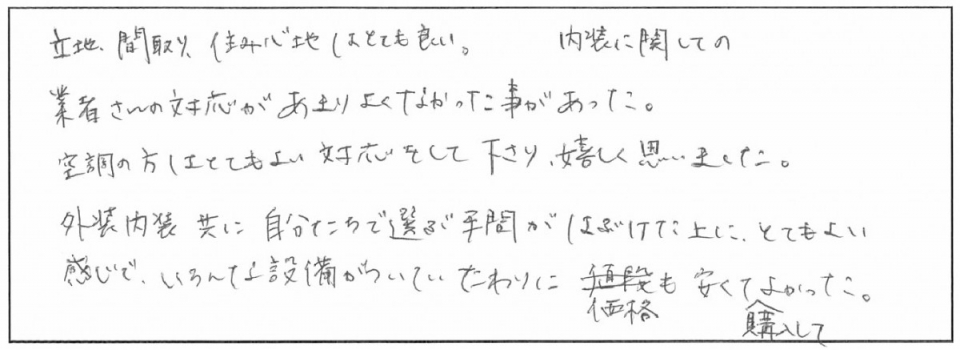 立地、間取り、住み心地はとても良い。 内装に関しての
業者さんの対応があまりよくなかった事があった。
空調の方はとてもよい対応をして下さり、嬉しく思いました。
外装内装共に自分たちで選ぶ手間がはぶけた上に、とてもよい
感じで、いろんな設備がついていたわりに値段も安くてよかった。
価格 購入して